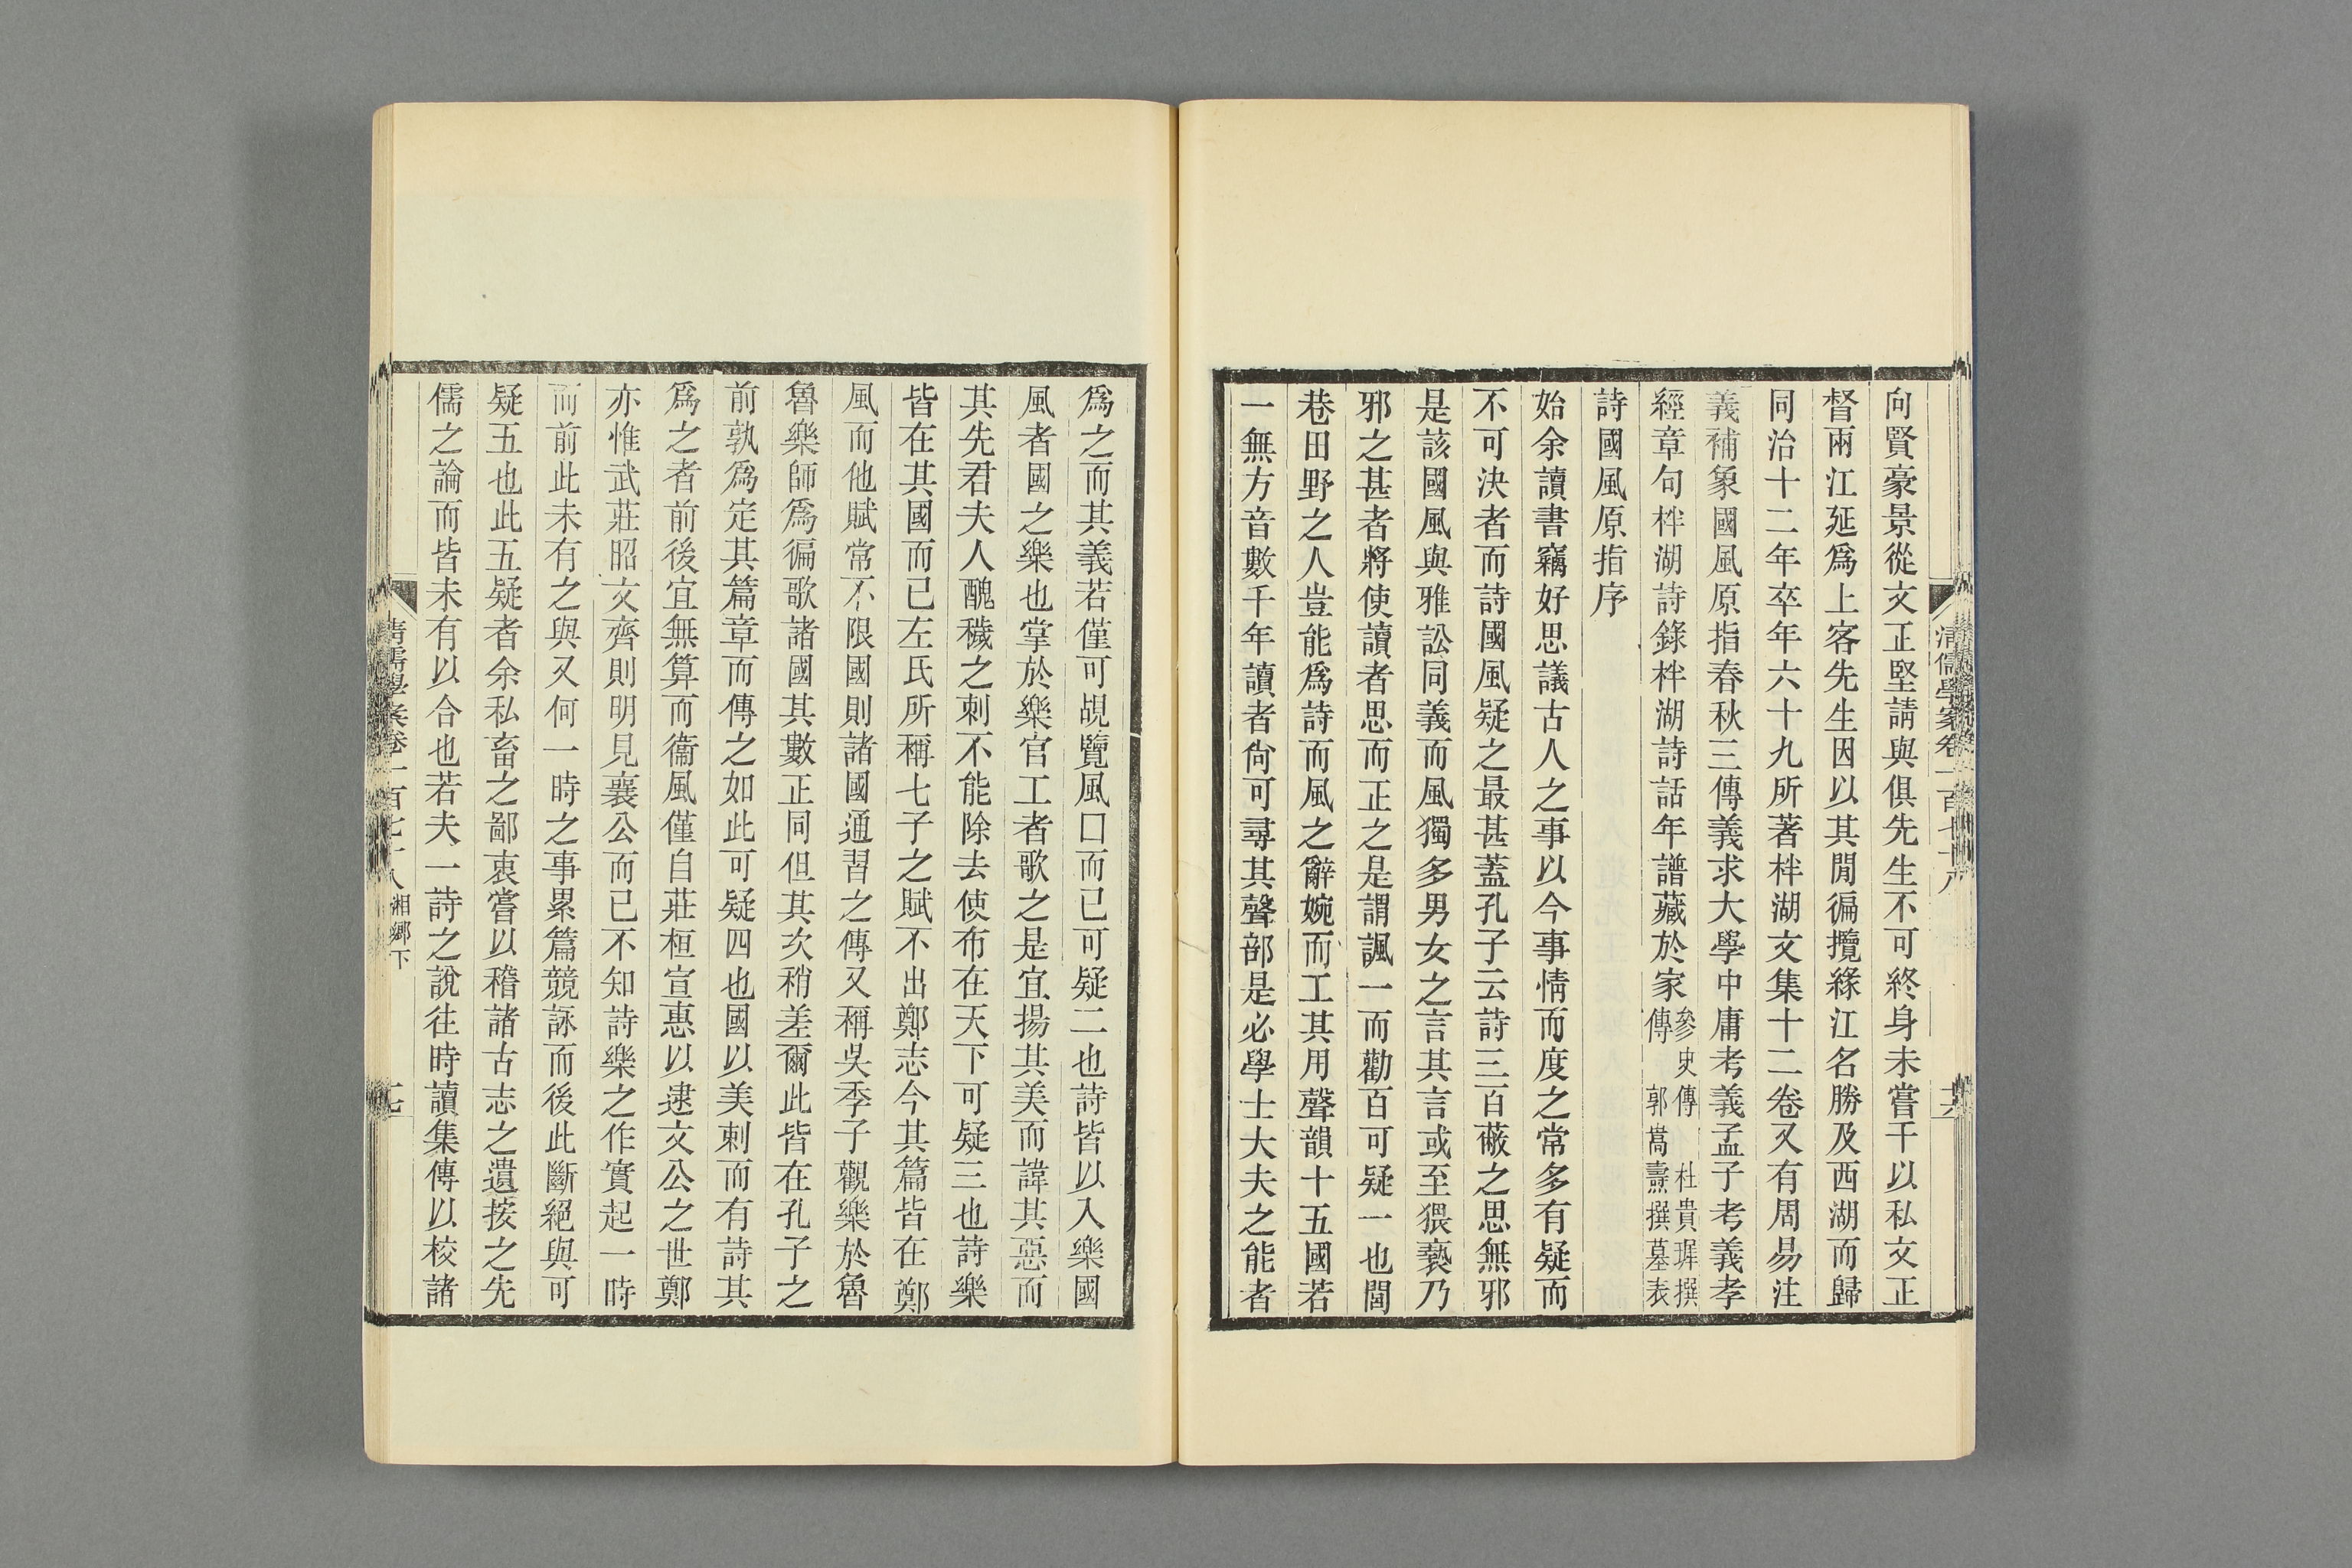 向賢豪景從文正堅請與俱先生不可終身未嘗干以私文正
督兩江延爲上客先生因以其閒徧攬緣江名勝及西湖而歸
同治十二年卒年六十九所著柈湖文集十二卷又有周易注
義補象國風原指春秋三傳義求大學中庸考義孟子考義孝
經章句柈湖詩錄柈湖詩話年譜藏於家參史傳 杜貴墀撰傳 郭嵩燾撰墓表
詩國風原指序
始余讀書竊好思議古人之事以今事情而度之常多有疑而
不可決者而詩國風疑之最甚蓋孔子云詩三百蔽之思無邪
是該國風與雅訟同義而風獨多男女之言其言或至猥褻乃
邪之甚者將使讀者思而正之是謂諷一而勸百可疑一也閭
巷田野之人豈能爲詩而風之辭婉而工其用聲韻十五國若
一無方音數千年讀者尙可尋其聲部是必學士大夫之能者
清儒學案卷一百七十八
十六
爲之而其義若僅可覘覽風口而已可疑二也詩皆以入樂國
風者國之樂也掌於樂官工者歌之是宜揚其美而諱其惡而
其先君夫人醜穢之刺不能除去使布在天下可疑三也詩樂
皆在其國而已左氏所稱七子之賦不出鄭志今其篇皆在鄭
風而他賦常不限國則諸國通習之傳又稱吳季子觀樂於魯
魯樂師爲徧歌諸國其數正同但其次稍差爾此皆在孔子之
前孰爲定其篇章而傳之如此可疑四也國以美刺而有詩其
爲之者前後宜無算而衞風僅自莊桓宣惠以逮文公之世鄭
亦惟武莊昭文齊則明見襄公而已不知詩樂之作實起一時
而前此未有之與又何一時之事累篇競詠而後此斷絕與可
疑五也此五疑者余私畜之鄙衷嘗以稽諸古志之遺按之先
儒之論而皆未有以合也若夫一詩之說往時讀集傳以校諸
清儒學案卷一百七十八 湘鄉下
十七